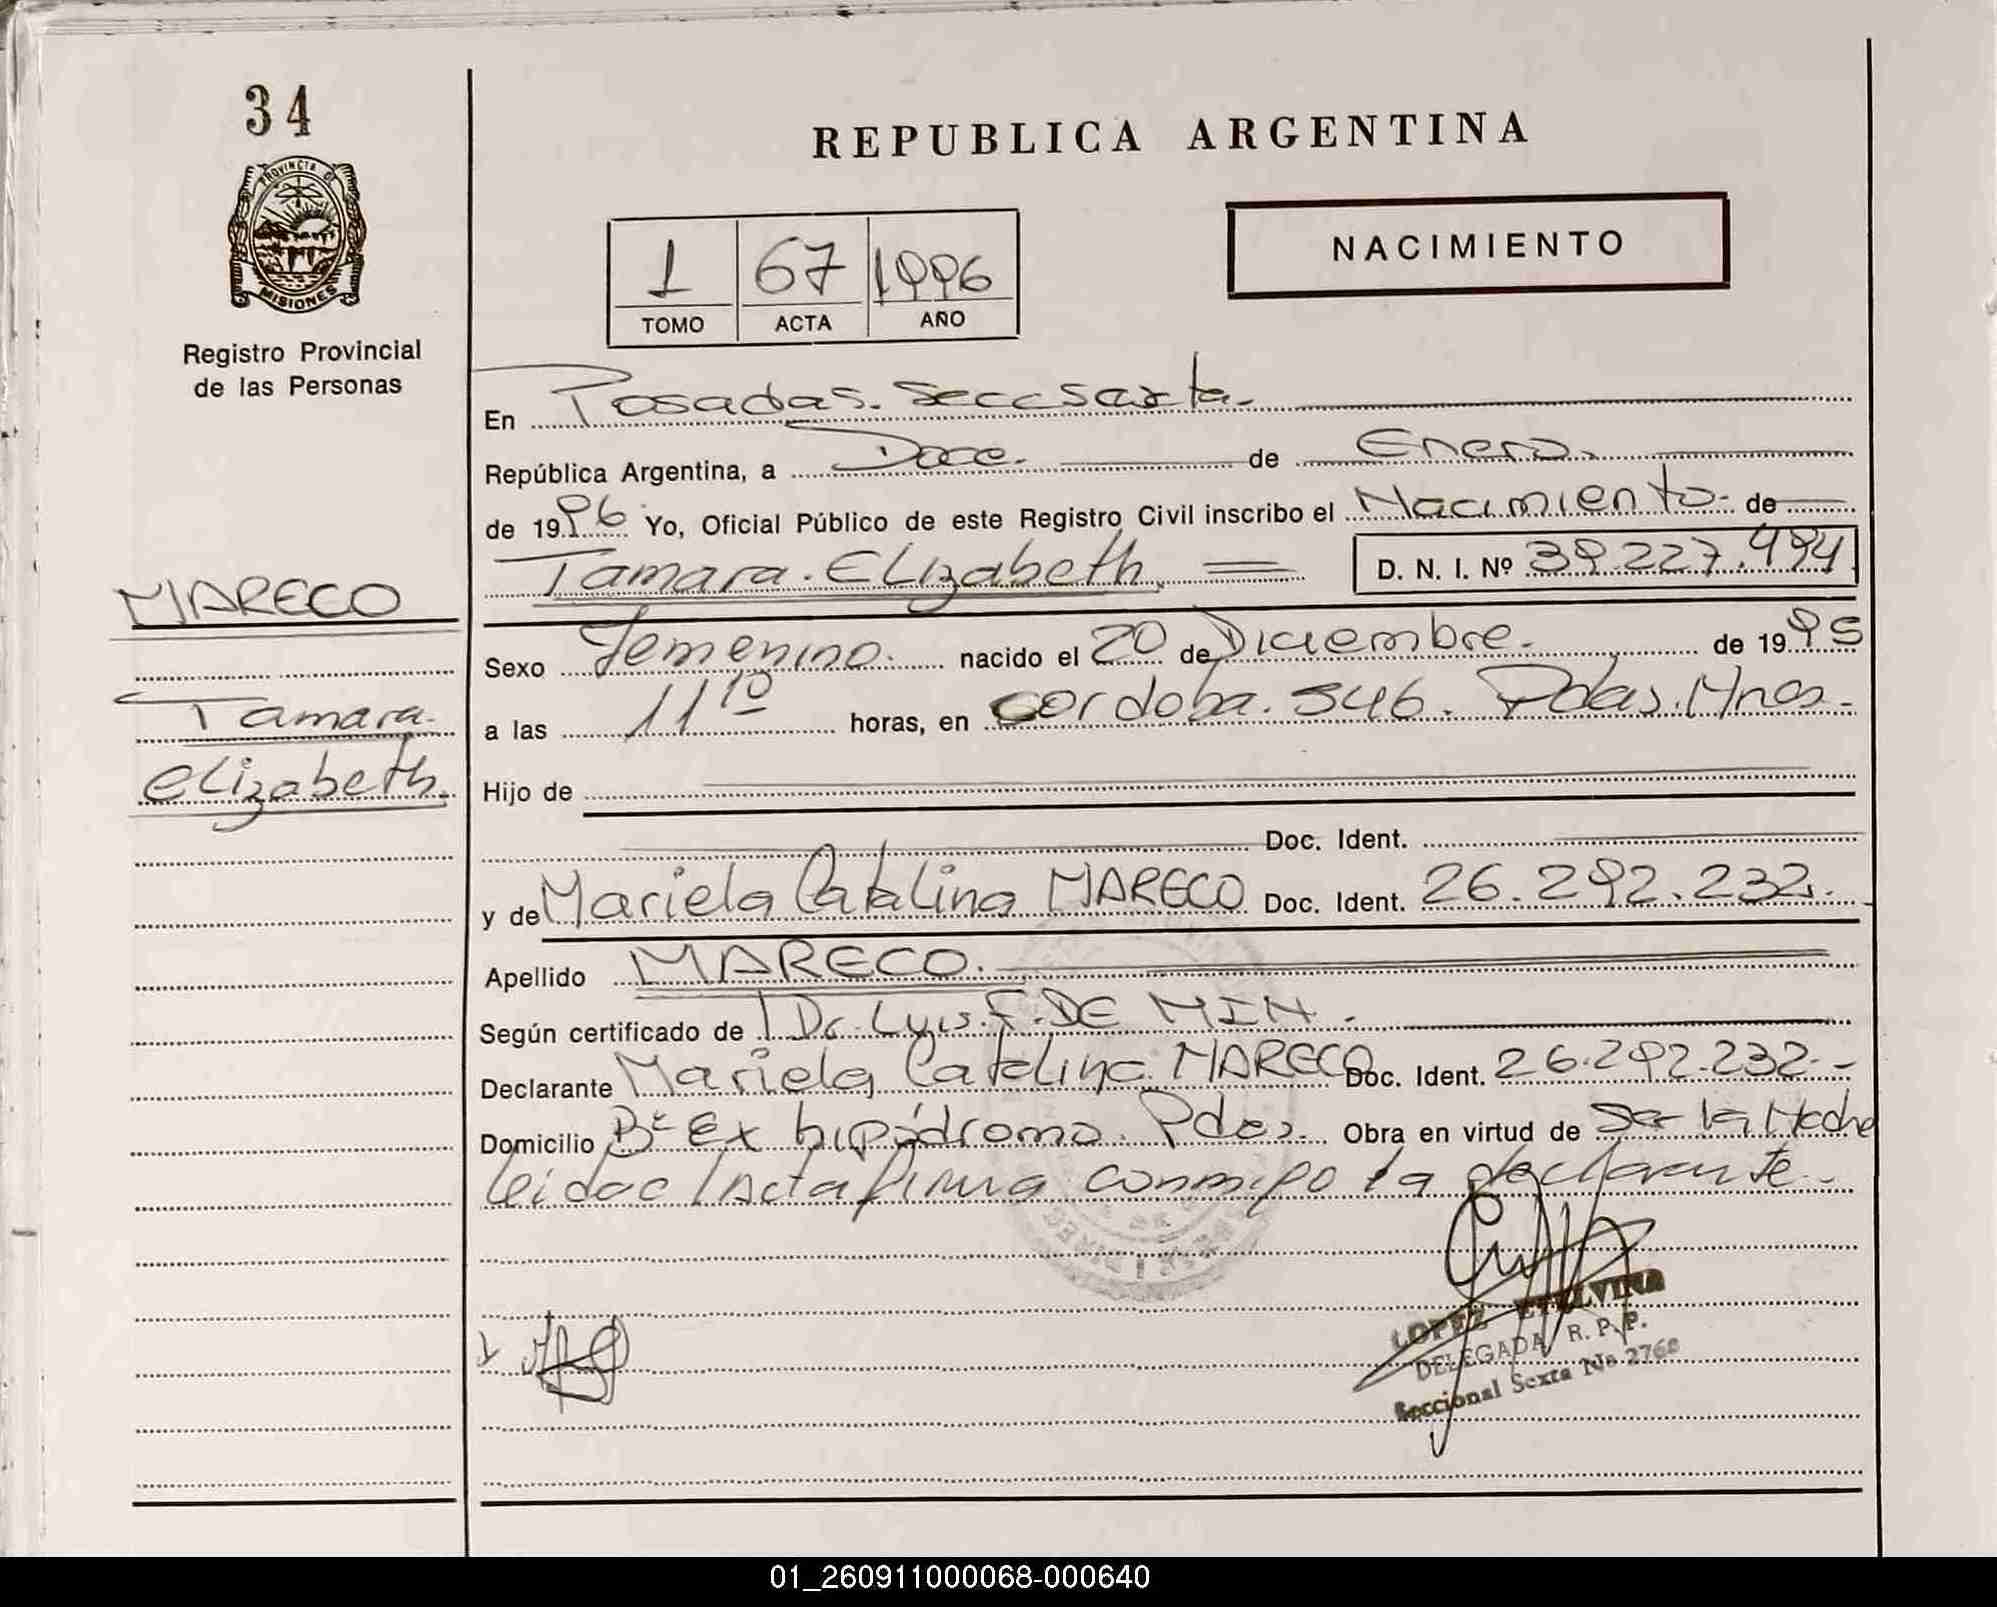 34
REPUBLICA ARGENTINA
PROVINCIA DE
MISIONES
NACIMIENTO
1 67 1996
TOMO ACTA AÑO
Registro Provincial
de las Personas
En Posadas. Secc Sexta.
República Argentina, a Doce. de Enero.
de 1996 Yo, Oficial Público de este Registro Civil inscribo el Nacimiento de
Tamara. Elizabeth. D. N. I. Nº 39.227.494
MARECO
Sexo Femenino. nacido el 20 de Diciembre. de 1995
Tamara
a las 11 10 horas, en Cordoba. 546. Pdas. Mnes.
Elizabeth.
Hijo de
Doc. Ident.
y de Mariela Catalina MARECO Doc. Ident. 26.292.232.
Apellido MARECO.
Según certificado de Dr. Luis. F. DE MIN.
Declarante Mariela Catalina MARECO Doc. Ident. 26.292.232.-
Domicilio Bº Ex hipódromo. Pdas. Obra en virtud de Ser la Madre
leida el Acta firma conmigo la declarante.-
LOPEZ ETELVINA
DELEGADA R. P. P.
Seccional Sexta No 2768
01_260911000068-000640